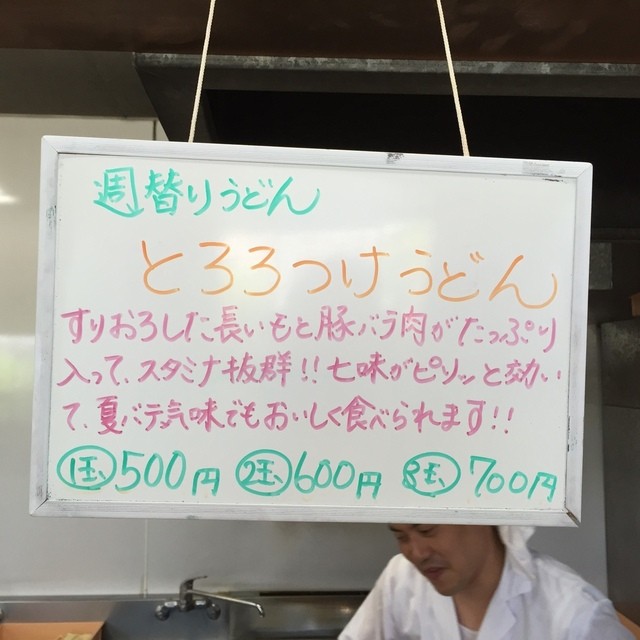 週替りうどん
とろろつけうどん
すりおろした長いもと豚バラ肉がたっぷり
入って、スタミナ抜群!! 七味がピリッと効い
て、夏バテ気味でもおいしく食べられます!!
1玉500円 2玉600円 3玉700円